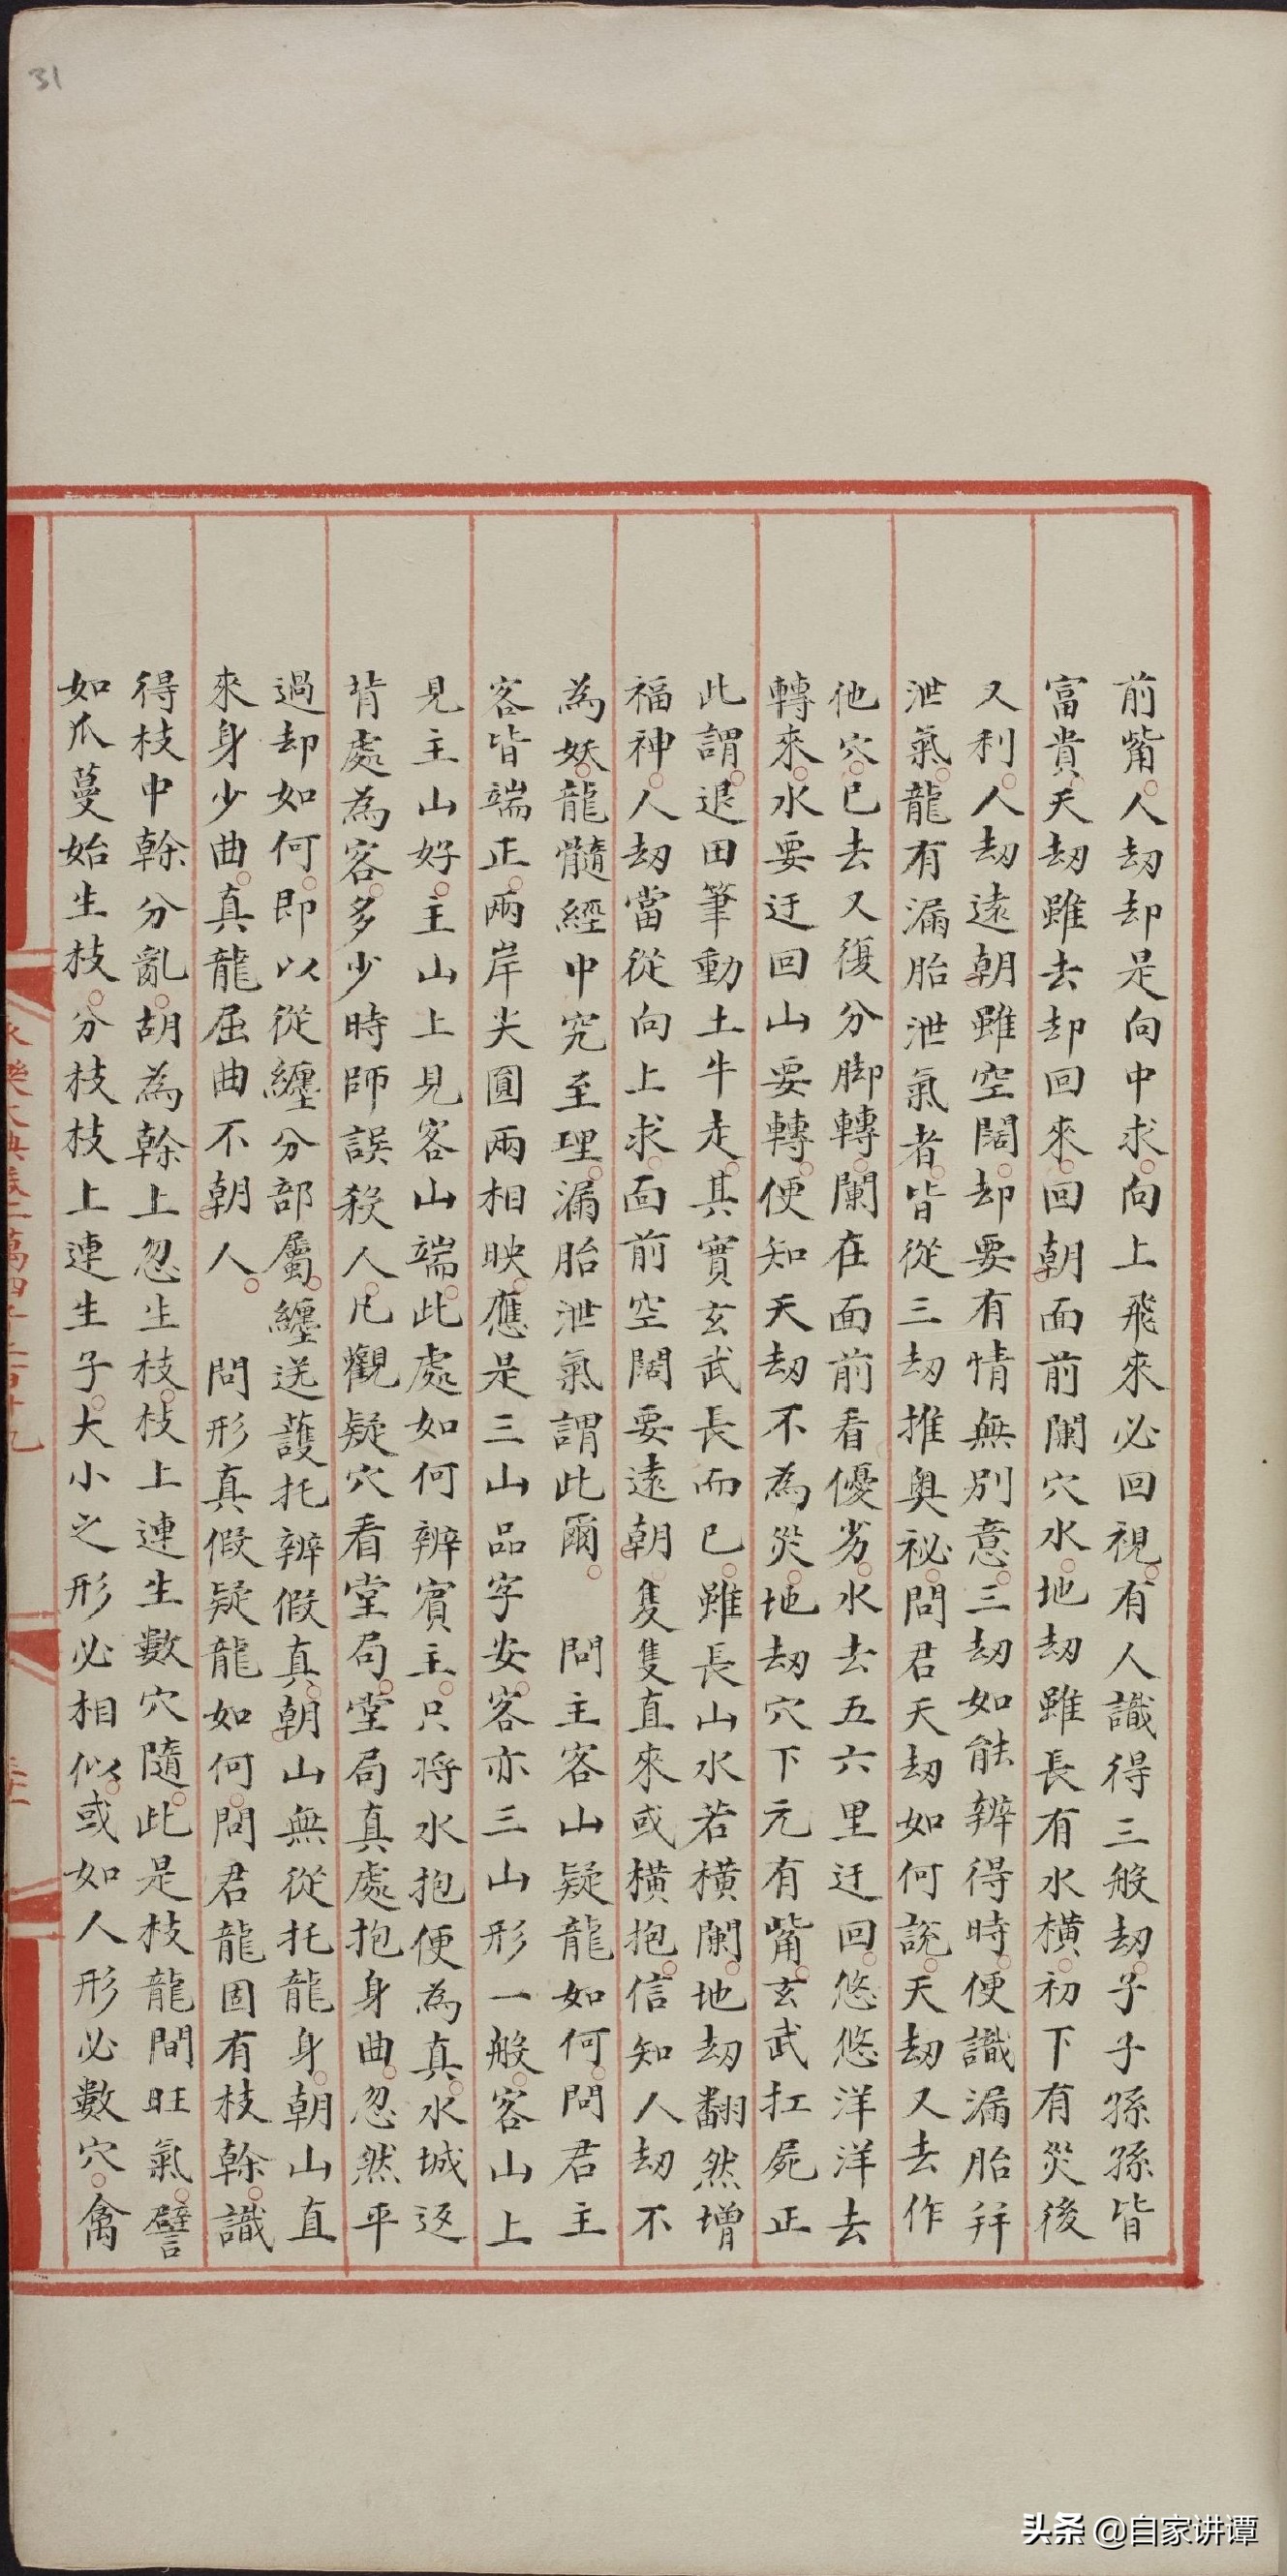 31
前觜人刼却是向中求向上飛來必回視有人識得三般刼子子孫孫皆
富貴天刼雖去却回來回朝面前闌穴水地刼雖長有水橫初下有災後
又利人刼遠朝雖空闊却要有情無別意三刼如能辨得時便識漏胎幷
泄氣龍有漏胎泄氣者皆從三刼推奥祕問君天刼如何說天刼又去作
他穴已去又復分脚轉闌在面前看優劣水去五六里迂回悠悠洋洋去
轉來水要迂回山要轉便知天刼不為災地刼穴下元有觜玄武扛屍正
此謂退田筆動土牛走其實玄武長而已雖長山水若橫闌地刼翻然增
福神人刼當從向上求面前空闊要遠朝隻隻直來或橫抱信知人刼不
為妖龍髓經中究至理漏胎泄氣謂此爾 問主客山疑龍如何問君主
客皆端正兩岸尖圓兩相映應是三山品字安客亦三山形一般客山上
見主山好主山上見客山端此處如何辨賓主只將水抱便為真水城返
背處為客多少時師誤殺人凡觀疑穴看堂局堂局真處抱身曲忽然平
過却如何即以從纏分部屬纏送護托辨假真朝山無從托龍身朝山直
來身少曲真龍屈曲不朝人 問形真假疑龍如何問君龍固有枝榦識
得枝中榦分亂胡為榦上忽生枝枝上連生數穴隨此是枝龍間旺氣譬
如爪蔓始生枝分枝枝上連生子大小之形必相似或如人形必數穴禽
永樂大典卷二萬四千三百十九
头条 @自家讲谭